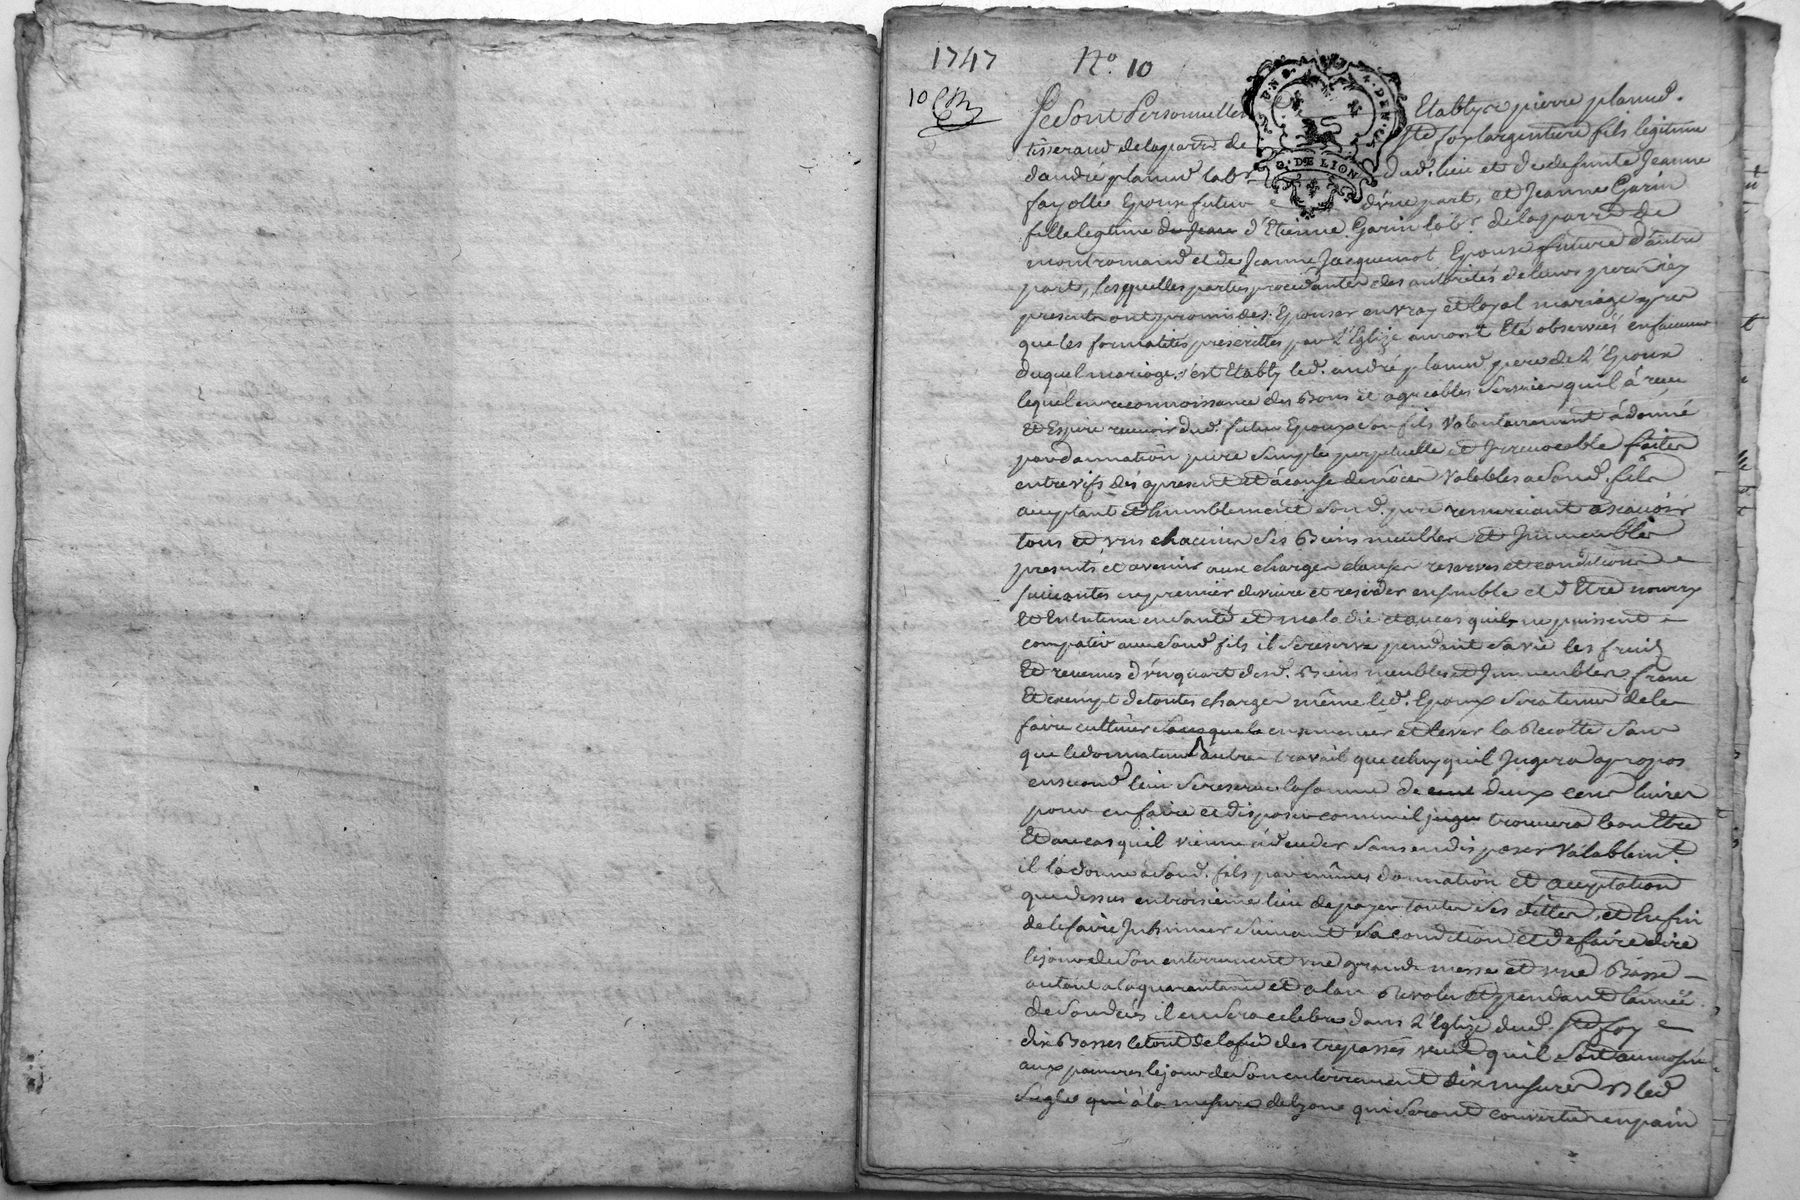 1747 No. 10
10
Se sont Personnellem Etablys pierre planud.
tisserand de laparro. de Ste foy largentiere fils legitime
dandré planud labr dud. lieu et de defunte Jeanne
fayolle Epoux futur d'une part, et Jeanne Garin
fille legitime de Jean d'Etienne Garin labr. de laparro. de
montromand et de Jeanne Jacquemot Epouse future d'autre
part, lesquelles parties procedantes des autorités de leurs peres icy
presents ont promis des. Epouser en vray et loyal mariage apres
que les formalités prescrittes par l'Eglize auront Eté observées en faveur
duquel mariage s'est Etably led. andré planud pere de l'Epoux
lequel en reconnoissance des Bons et agreables services quil à reçu
Et Espere recevoir dud. futur Epoux son fils volontairement à donné
par donnation pure simple perpetuelle et Irrevocable faitte
entrevifs dés apresent et à cause de nôces valables a sond. fils
acceptant et humblement sond. pere remerciant ascavoir
tous et uns chacuns ses Biens meubles et Immeubles
presents et avenir aux charges clauses reserves et conditions
suivantes en premier de vivre et resider ensemble et d'Etre nourry
Et Entretenu en santé et maladie et au cas quils ne puissent
compatir avec sond. fils il se reserve pendant sa vie les fruits
Et revenus d'un quart desd. Biens meubles et Immeubles franc
Et exempt de toutes charges même led. Epoux sera tenu de le
faire cultiver ensemencer et lever la Recolte sans
que le donnateur autre travail que celuy quil Jugera apropos
en second lieu se reserve la somme de cent deux cens livres
pour en faire et disposer comme il juge trouvera bon Etre
Et au cas quil vienne à deceder sans en disposer valablemt.
il la donne a sond. fils par mêmes donnation et acceptation
que dessus en troisieme lieu de payer toutes ses dettes, et Enfin
de le faire Inhumer suivant sa condition et de faire dire
le jour de son enterrement une grande messe et une Basse
autant a la quarantaine et a lan Revolu et pendant lannée
de son decés il en sera celebré dans l'Eglize dud. Ste foy
dix Basses le tout de la fin des trépassés veut quil soit aumosné
aux pauvres le jour de son enterrement dix mesures Bled
seigle à la mesure de qui seront converties en pain